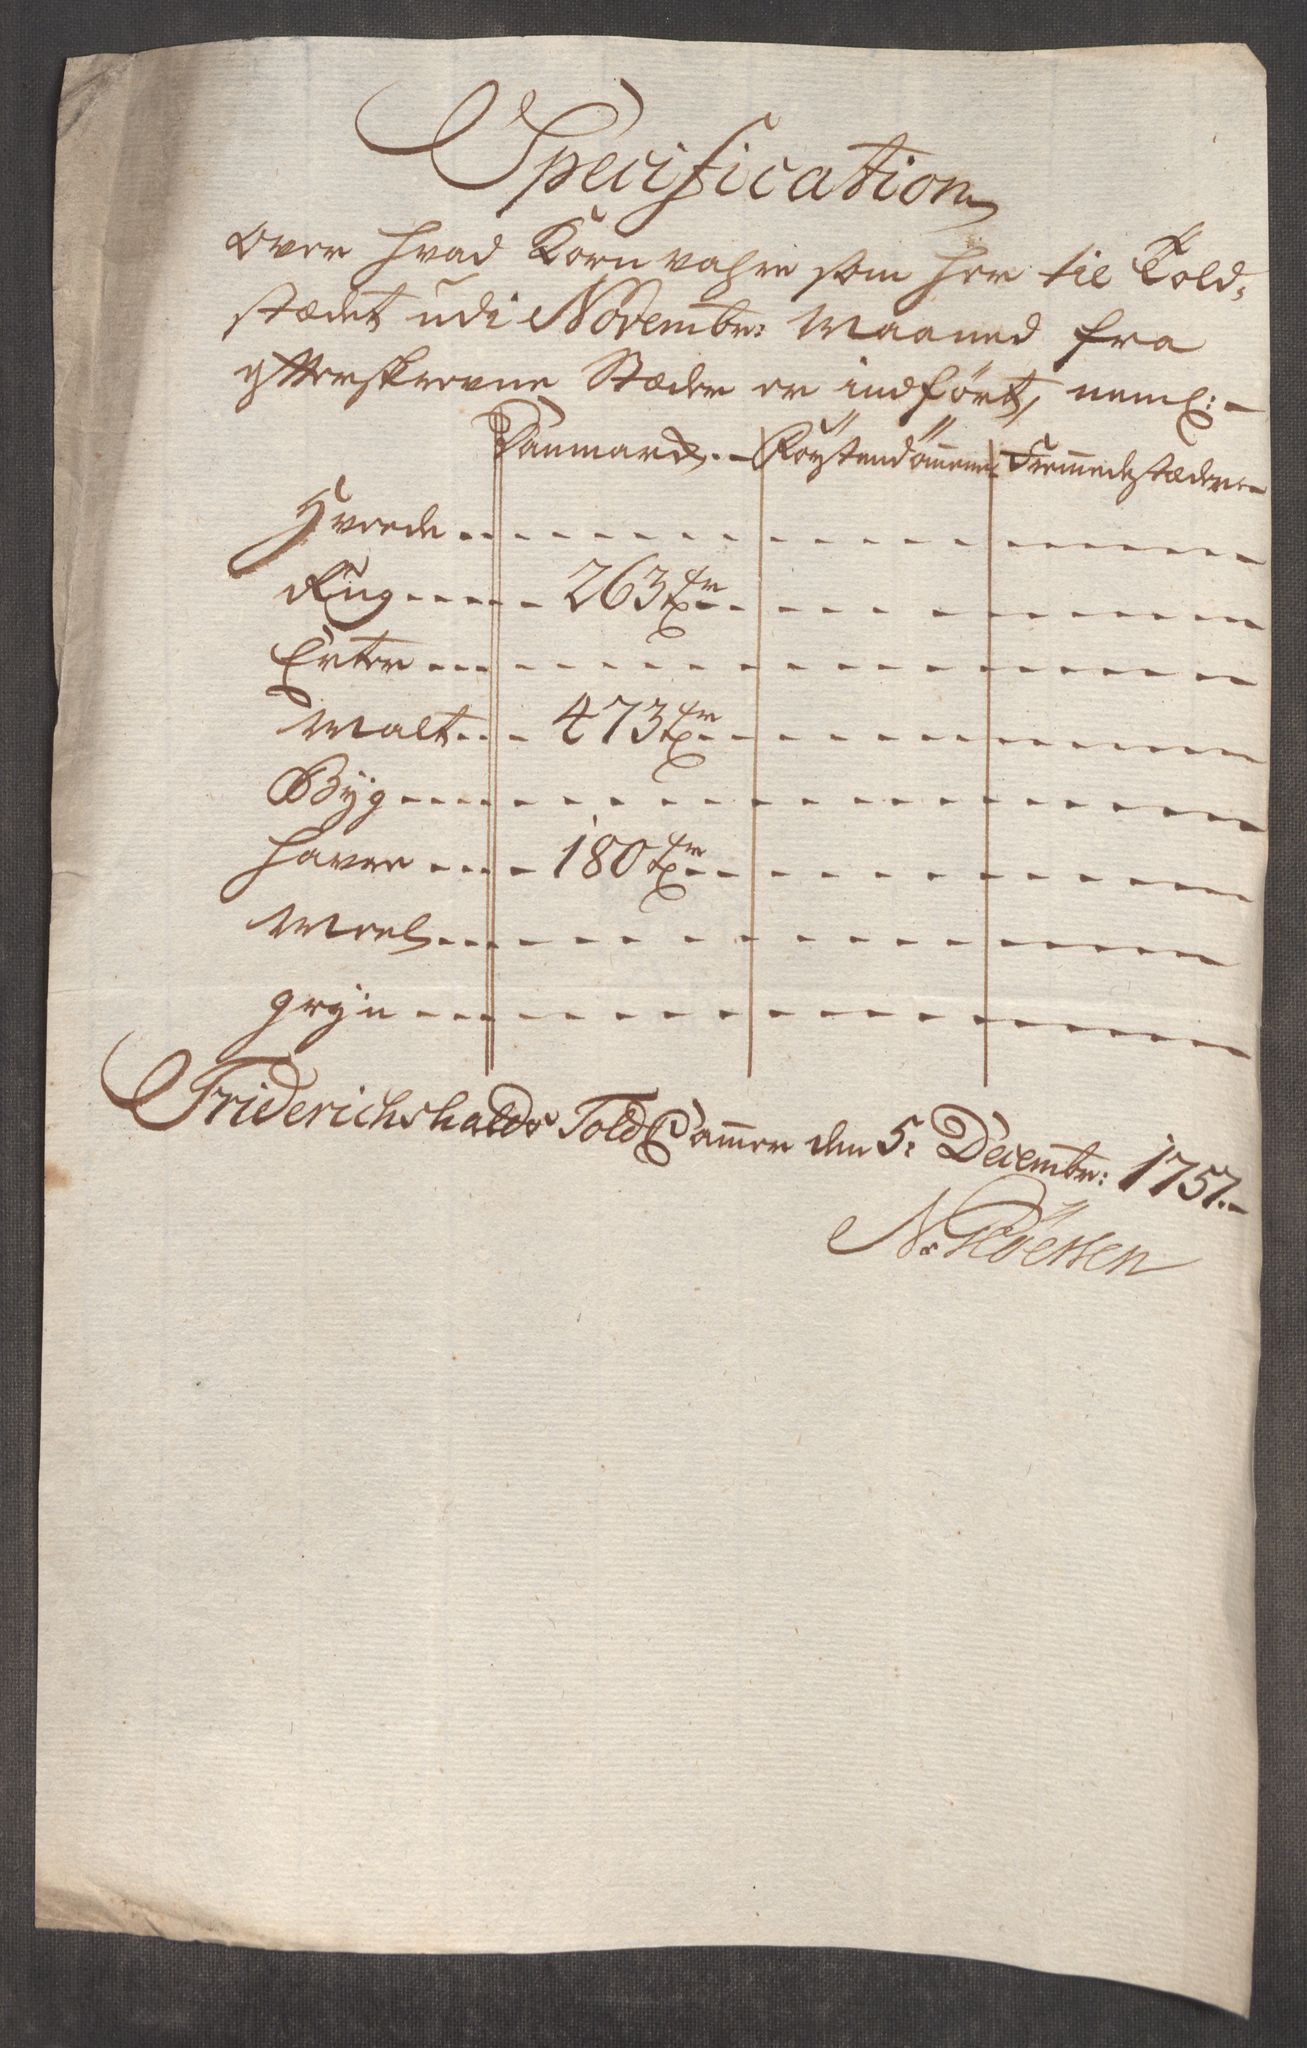 Specification
Over hvad Korn vahre som her til Told-
stædet udi Novembr: Maaned fra
efterskrevne Stæder er indført, neml: -
Danmarck. - Førstendömmene Fremmede stæder -
Hvede
Rug 263 tr
Erter
Malt 473 tr
Byg
Havre 180 tr
Meel
Gryn
Friderichshalds Told Cammer den 5: Decembr: 1757. -